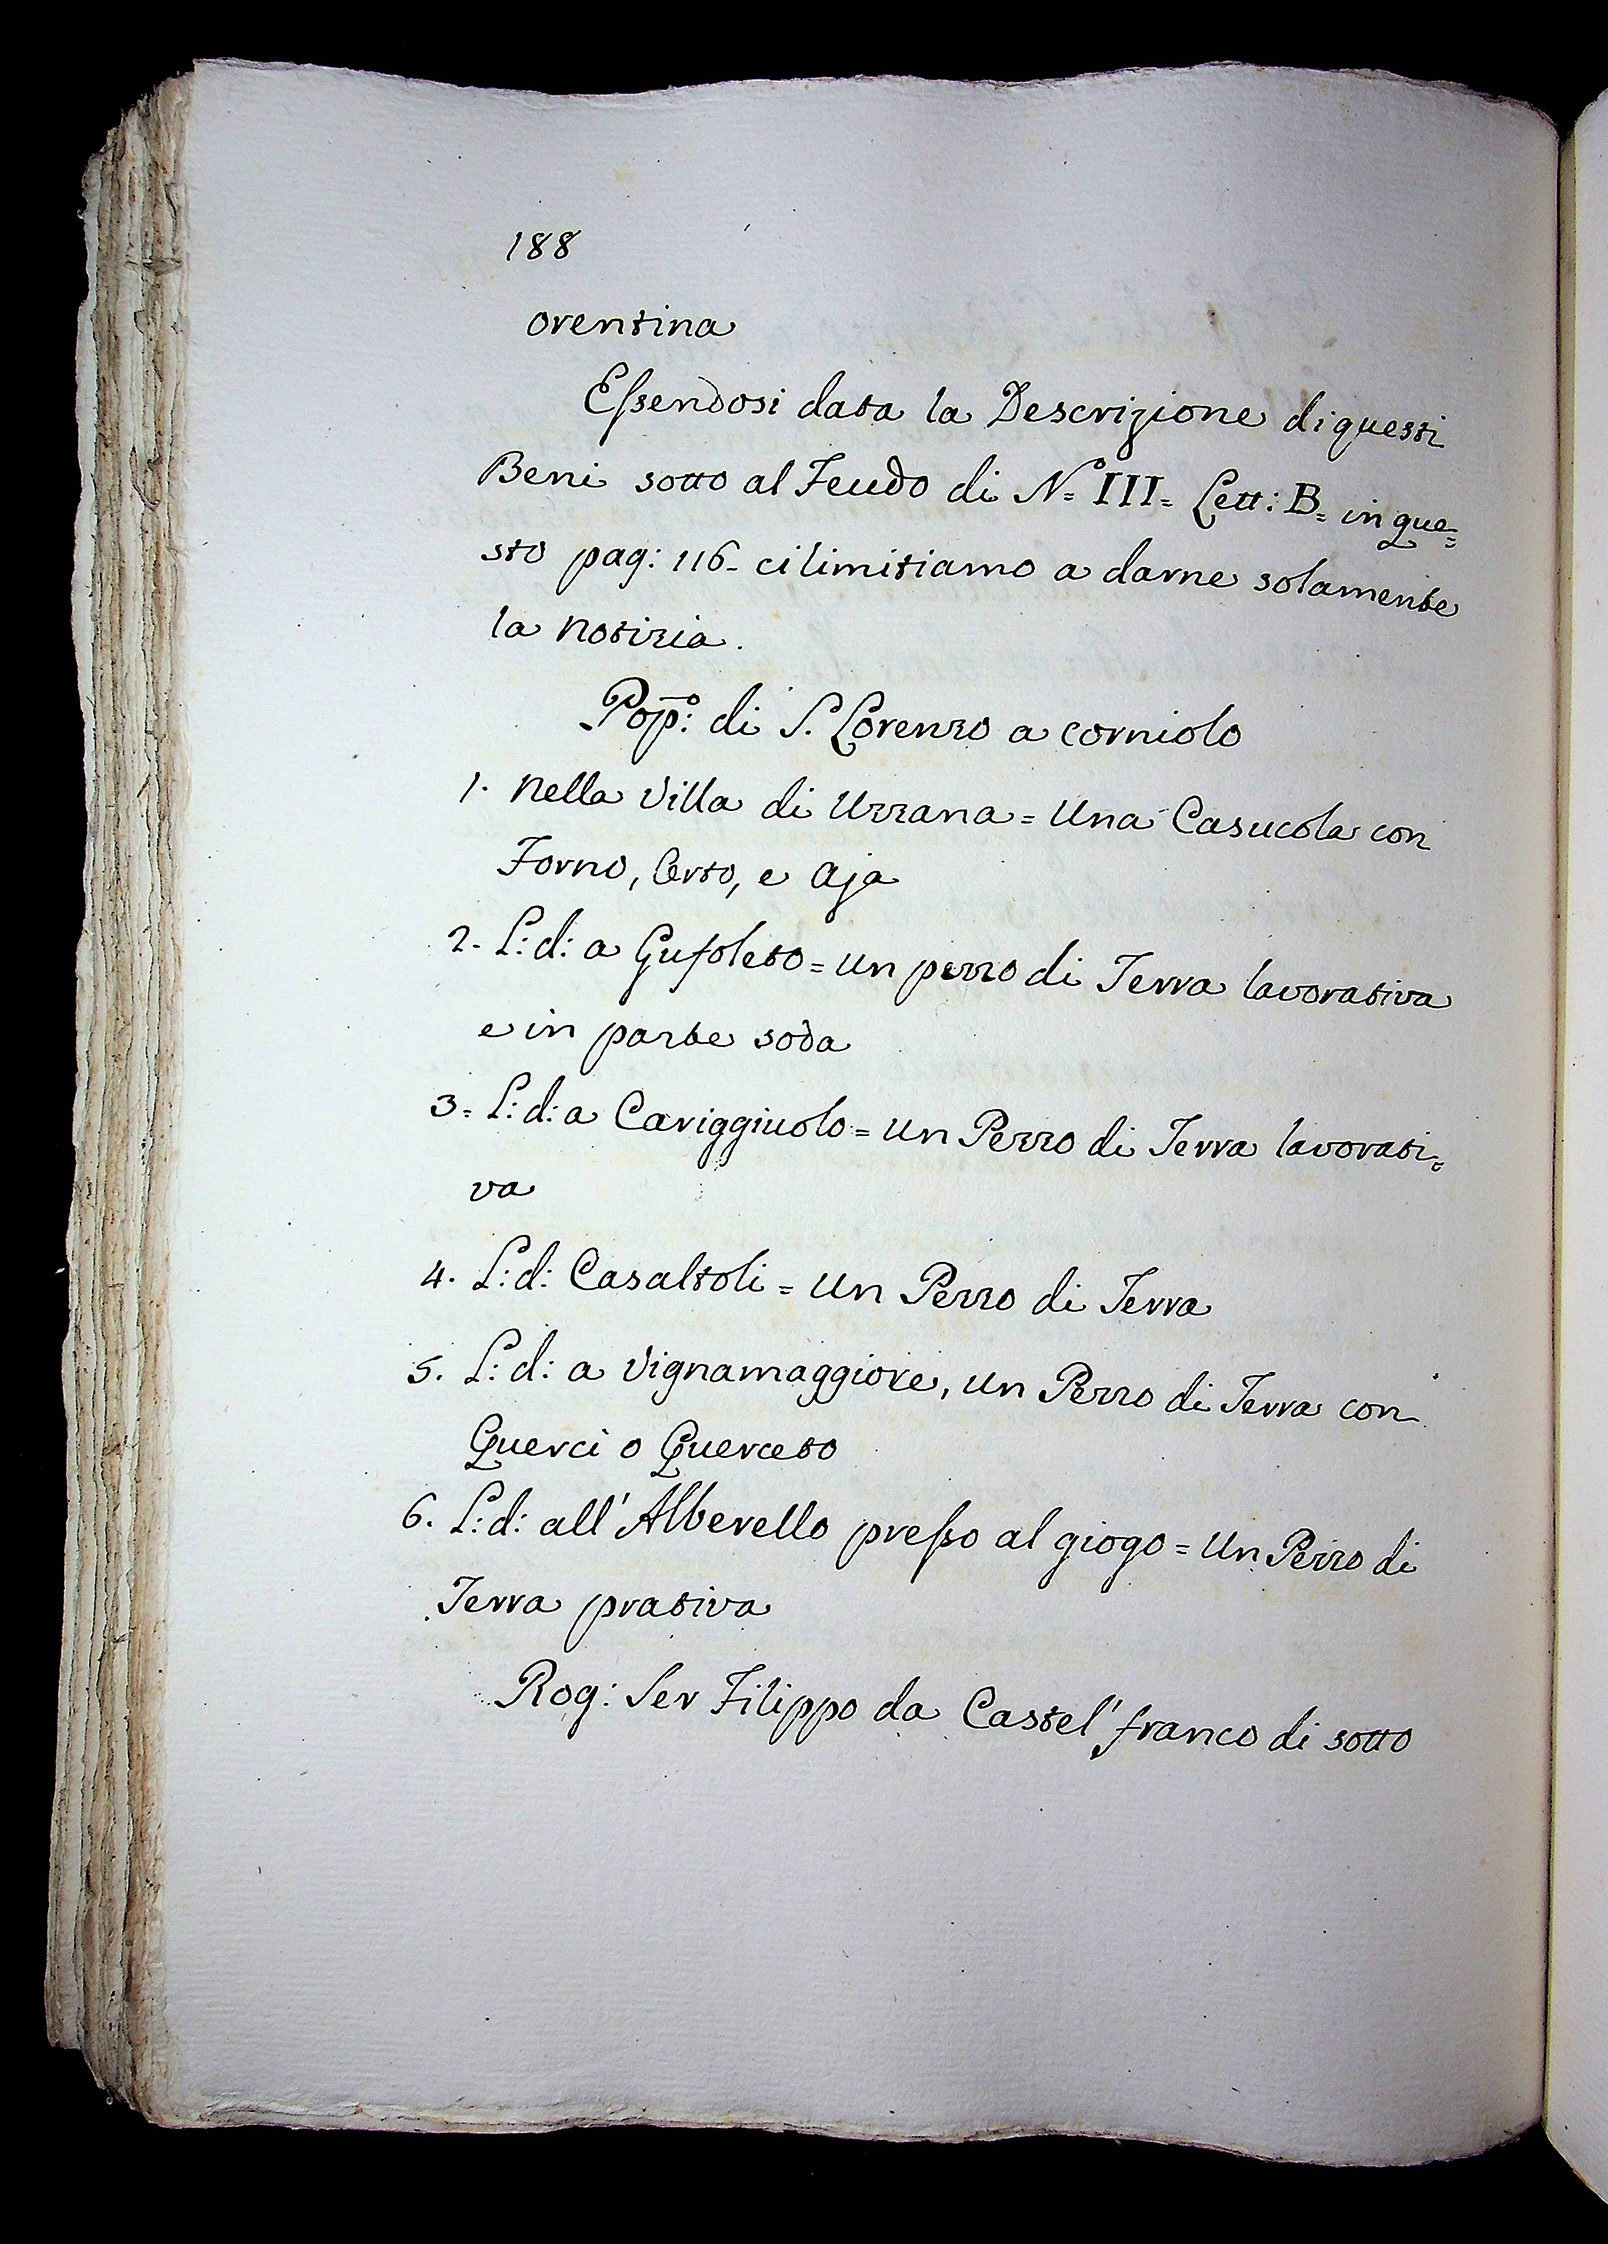 188
orentina
Essendosi data la Descrizione di questi
Beni sotto al Feudo di N.° III= Lett: B= in que=
sto pag: 116- ci limitiamo a darne solamente
la notizia.
Pop:° di S. Lorenzo a corniolo
1. Nella Villa di Uzzana = Una Casucola con
Forno, Orto, e Aja
2. L: d: a Gufoleto = un pezzo di Terra lavorativa
e in parte soda
3= L: d: a Cariggiuolo = un Pezzo di Terra lavorati=
va
4. L: d: Casaltoli = un Pezzo di Terra
5. L: d: a Vignamaggiore, un Pezzo di Terra con
Querci o Querceto
6. L: d: all' Alberello presso al giogo = Un Pezzo di
Terra prativa
Rog: Ser Filippo da Castel' franco di sotto